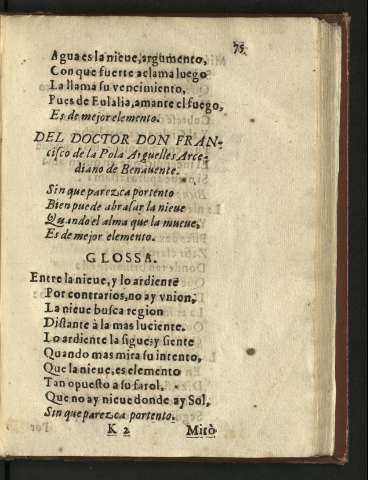 75
Agua es la nieue, argumento,
Con que fuerte aclama luego
La llama su vencimiento,
Pues de Eulalia, amante el fuego,
Es de mejor elemento.
DEL DOCTOR DON FRAN-
cisco de la Pola Arguelles Arce-
diano de Benauente.
Sin que parezca portento
Bien puede abrasar la nieue
Quando el alma que la mueue,
Es de mejor elemento.
GLOSSA.
Entre la nieue, y lo ardiente
Por contrarios, no ay vnion,
La nieue busca region
Distante à la mas luciente.
Lo ardiente la sigue; y siente
Quando mas mira su intento,
Que la nieue, es elemento
Tan opuesto a su farol,
Que no ay nieue donde ay Sol,
Sin que parezca portento.
K 2 Mitò